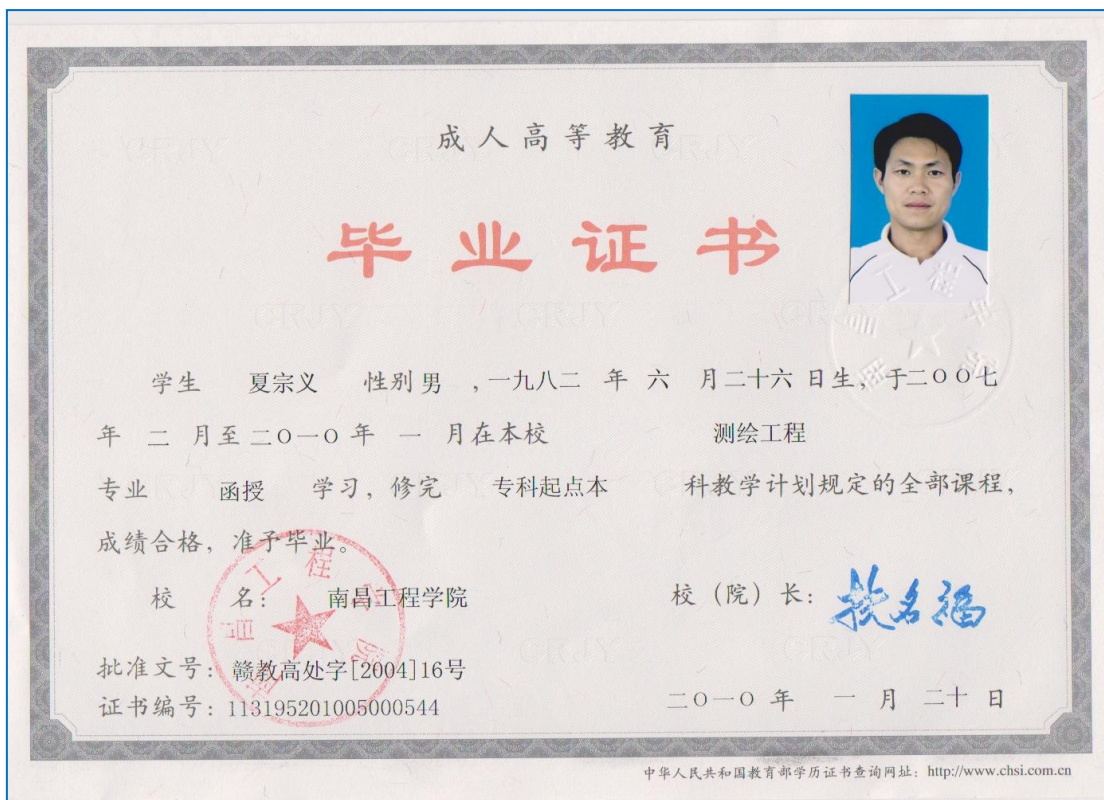 成人高等教育
毕业证书
学生 夏宗义 性别 男 ,一九八二 年 六 月二十六 日生,于二〇〇七
年 二 月至 二〇一〇 年 一 月在本校 测绘工程
专业 函授 学习,修完 专科起点本 科教学计划规定的全部课程,
成绩合格,准予毕业。
校 名: 南昌工程学院 校(院)长:
批准文号:赣教高处字[2004]16号
证书编号:113195201005000544 二〇一〇 年 一 月 二十 日
南昌工程学院
中华人民共和国教育部学历证书查询网址:http://www.chsi.com.cn